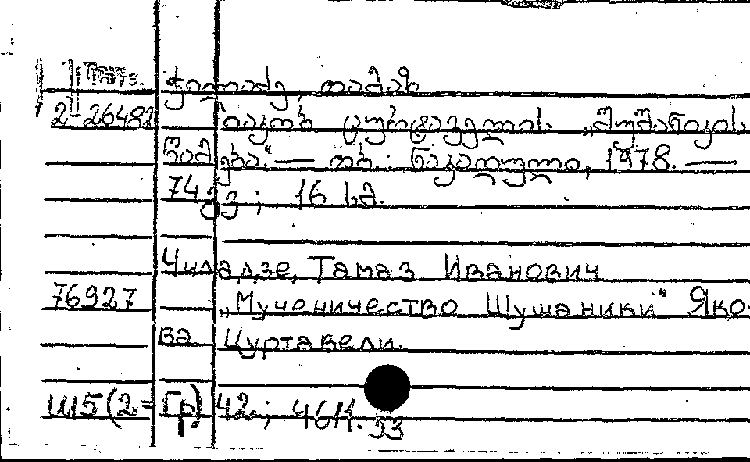 ჭილაძე, თამაზ
2-26481 იაკობ ცურტაველის „შუშანიკის
წამება“. — თბ.: ნაკადული, 1978. —
74 გვ.; 16 სმ.
Чиладзе, Тамаз Иванович
76927 „Мученичество Шушаники“ Яко-
ва Цуртавели.
Ш5(2=Гр)42;